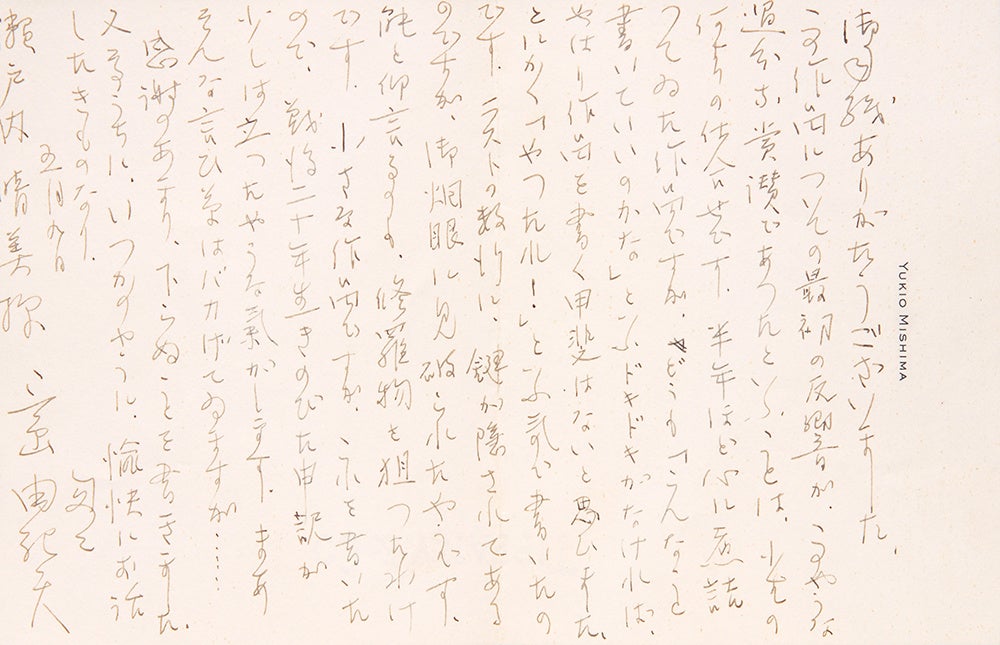 御手紙ありがたうございました。
この作品についその最初の反響が、このやうな
過分な賞讃であつたといふことは、小生の
何よりの仕合せです。半年ほど心に思詰
つてゐた作品ですが、どうも「こんなこと
書いていいのかな」といふドキドキがなければ、
やはり作品を書く甲斐はないと思ひました。
とにかく「やつたれ!」といふ気で書いたの
です。ラストの数行に、鍵が隠されてある
のですが、御炯眼に見破られたやうです。
能と仰言るのも、修羅物を狙つたわけ
です。小さな作品ですが、これを書いた
ので、戦後二十年生きのびた申訳が
少しは立つたやうな気がします。まあ
そんな言ひ草はバカげてゐますが……
感謝のあまり、下らぬことを書きました。
又そのうちに、いつかのやうに、愉快にお話
したきものなり。
五月九日
三島由紀夫
瀬戸内晴美様
YUKIO MISHIMA